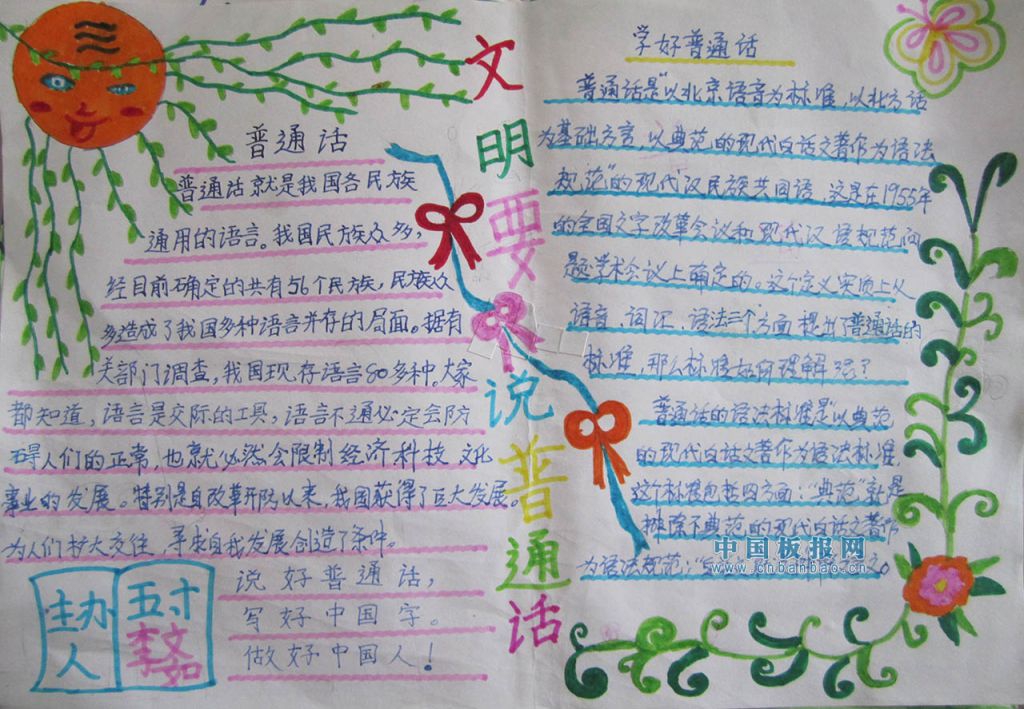 普通话
普通话就是我国各民族
通用的语言。我国民族众多,
经目前确定的共有56个民族,民族众
多造成了我国多种语言并存的局面。据有
关部门调查,我国现存语言80多种。大家
都知道,语言是交际的工具,语言不通必定会防
碍人们的正常,也就必然会限制经济科技文化
事业的发展。特别是自改革开防以来,我国获得了巨大发展。
为人们扩大交往,寻求自我发展创造了条件。
说好普通话,
写好中国字。
做好中国人!
主办人
五寸
李文如
文明要说普通话
学好普通话
普通话是“以北京语音为标准,以北方话
为基础方言,以典范的现代白话文著作为语法
规范”的现代汉民族共同语,这是在1955年
的全国文字改革会议和现代汉语规范问
题学术会议上确定的。这个定义实质上从
语音、词汇、语法三个方面提出了普通话的
标准,那么标准如何理解呢?
普通话的语法标准是“以典范
的现代白话文著作为语法标准,
这个标准包括四方面:“典范”就是
排除不典范的现代白话文著作
为语法规范;
中国板报网
www.cnbanbao.cn